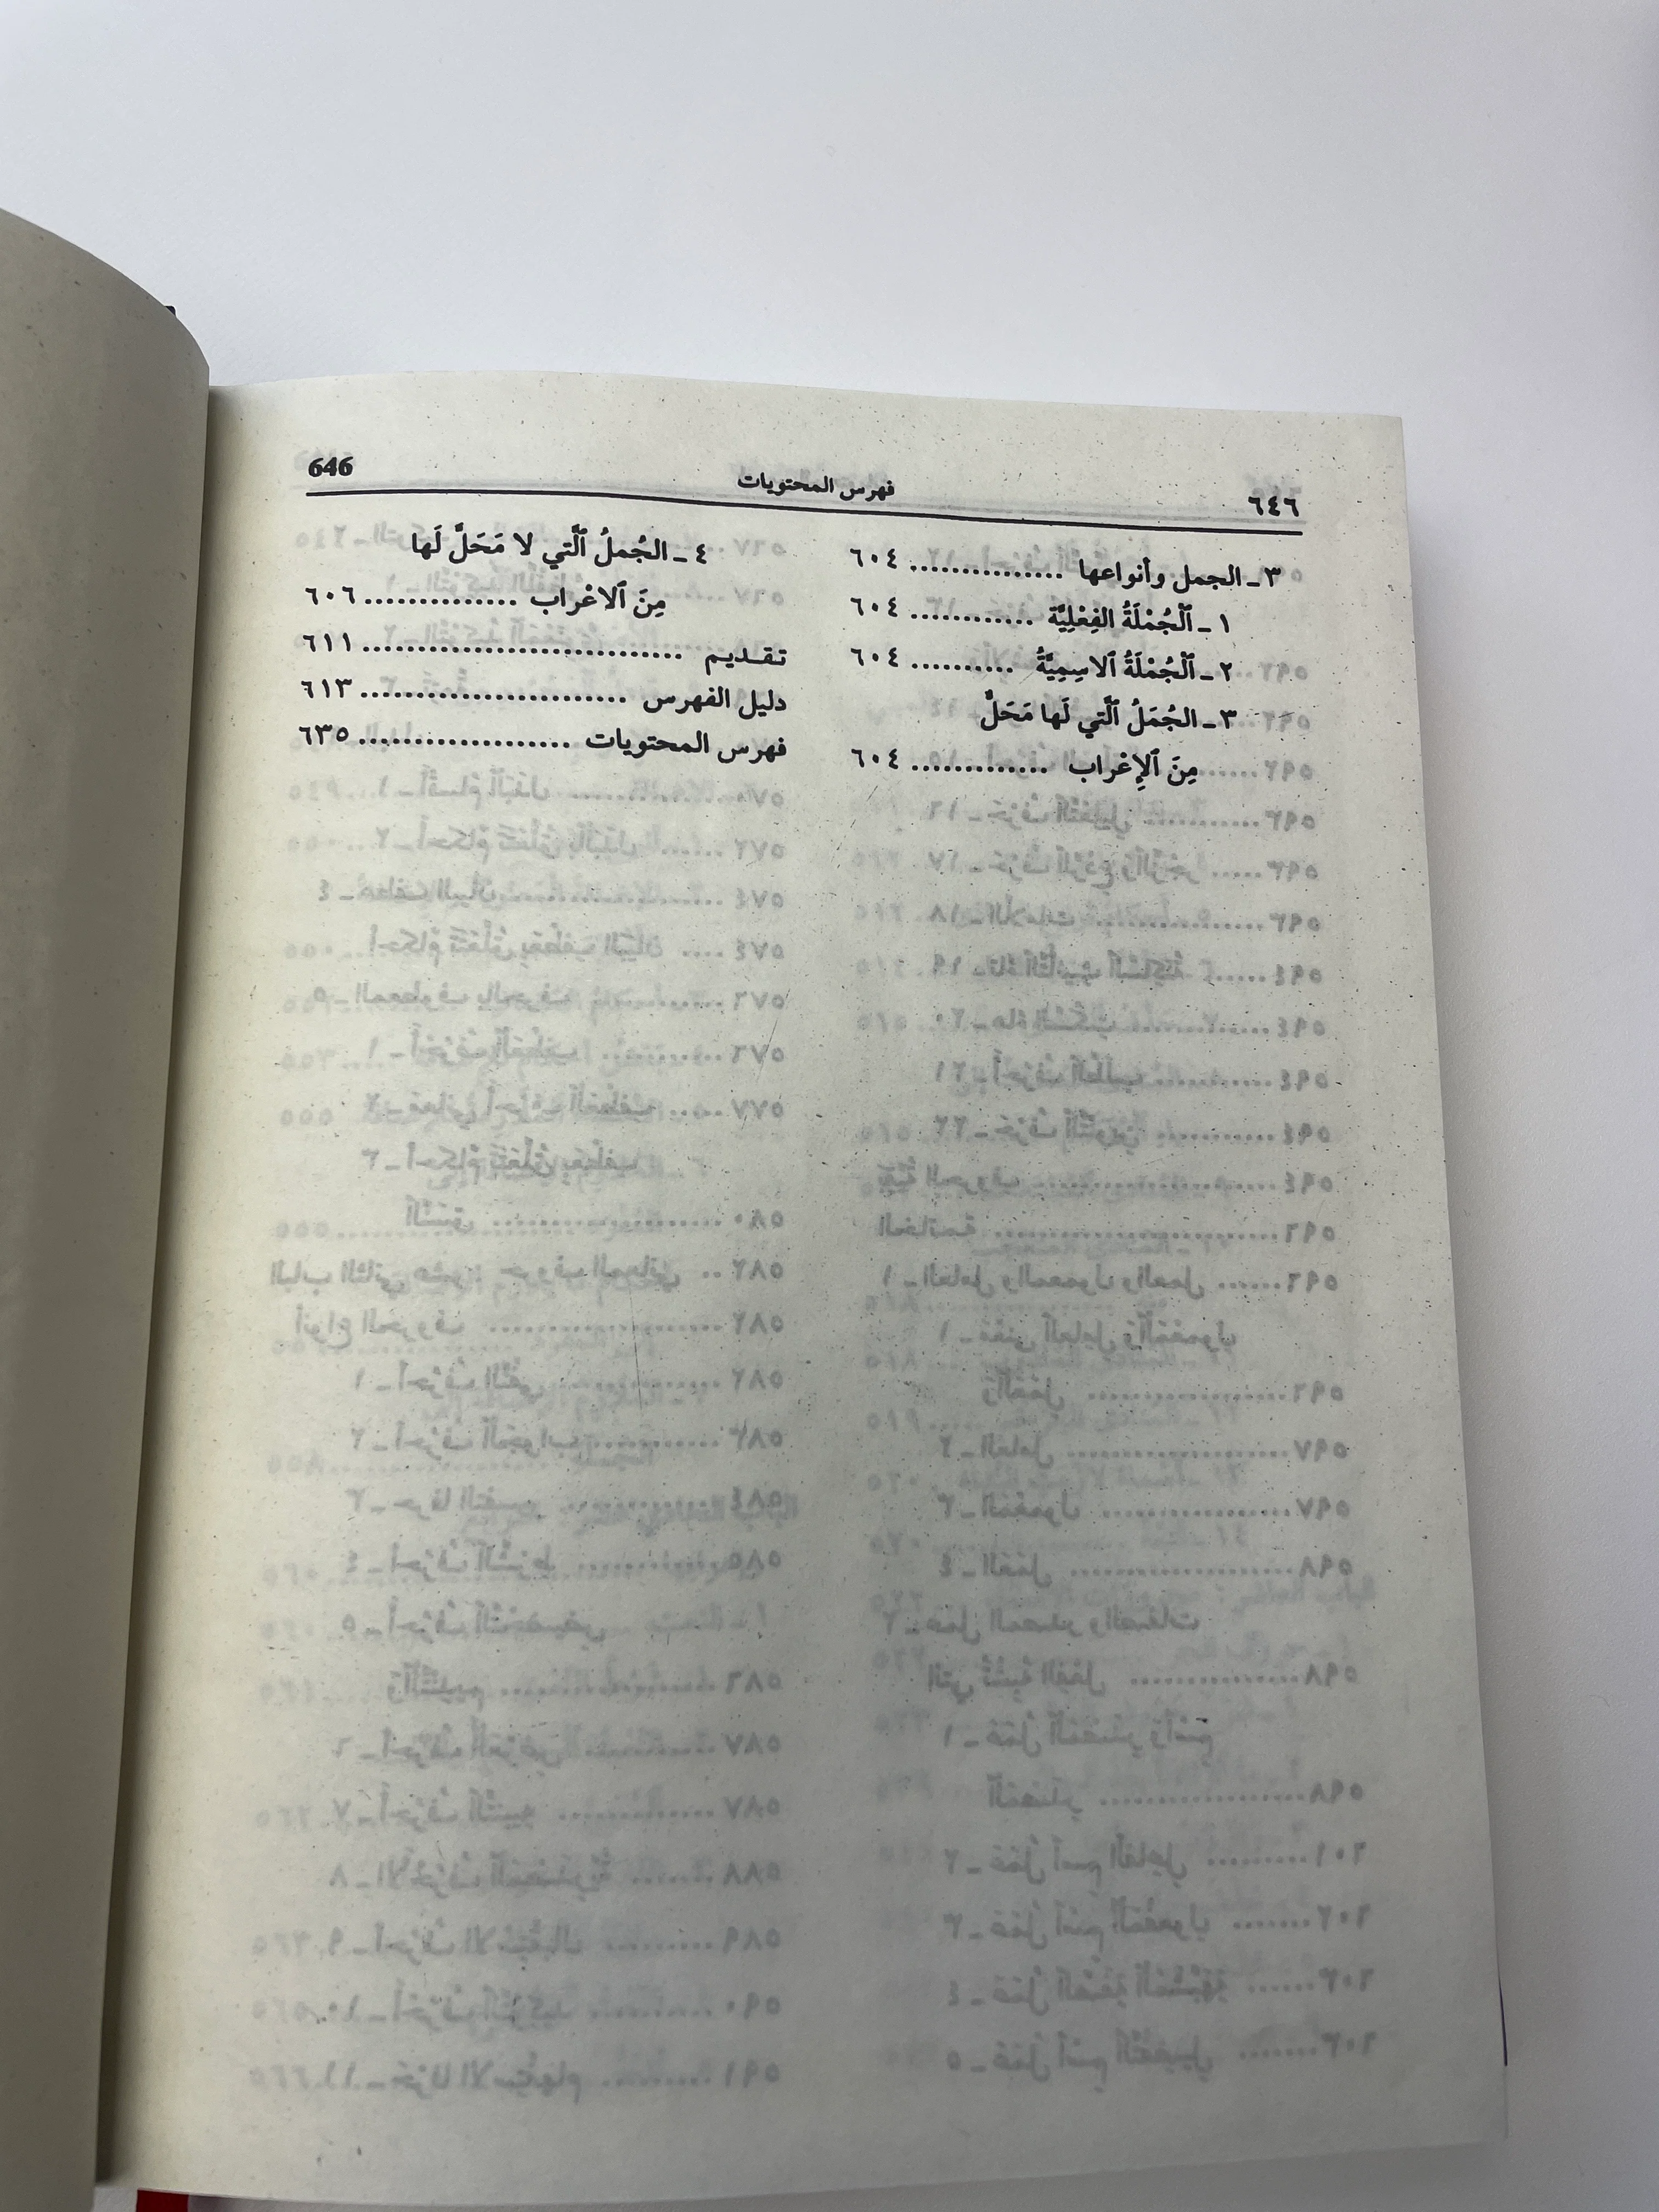 ٦٤٦
فهرس المحتويات
646
٣ ـ الجمل وأنواعها ................ ٦٠٤
١ ـ ٱلْجُمْلَةُ الفِعْلِيَّة ............ ٦٠٤
٢ ـ ٱلْجُمْلَةُ ٱلاسِمِيَّةُ .......... ٦٠٤
٣ ـ الجُمَلُ ٱلَّتي لَها مَحَلٌّ
مِنَ ٱلإِعْراب ............. ٦٠٤
٤ ـ الجُملُ ٱلَّتي لا مَحَلَّ لَها
مِنَ ٱلاعْراب .............. ٦٠٦
تقـديـم .............................. ٦١١
دليل الفهرس ......................... ٦١٣
فهرس المحتويات .................... ٦٣٥